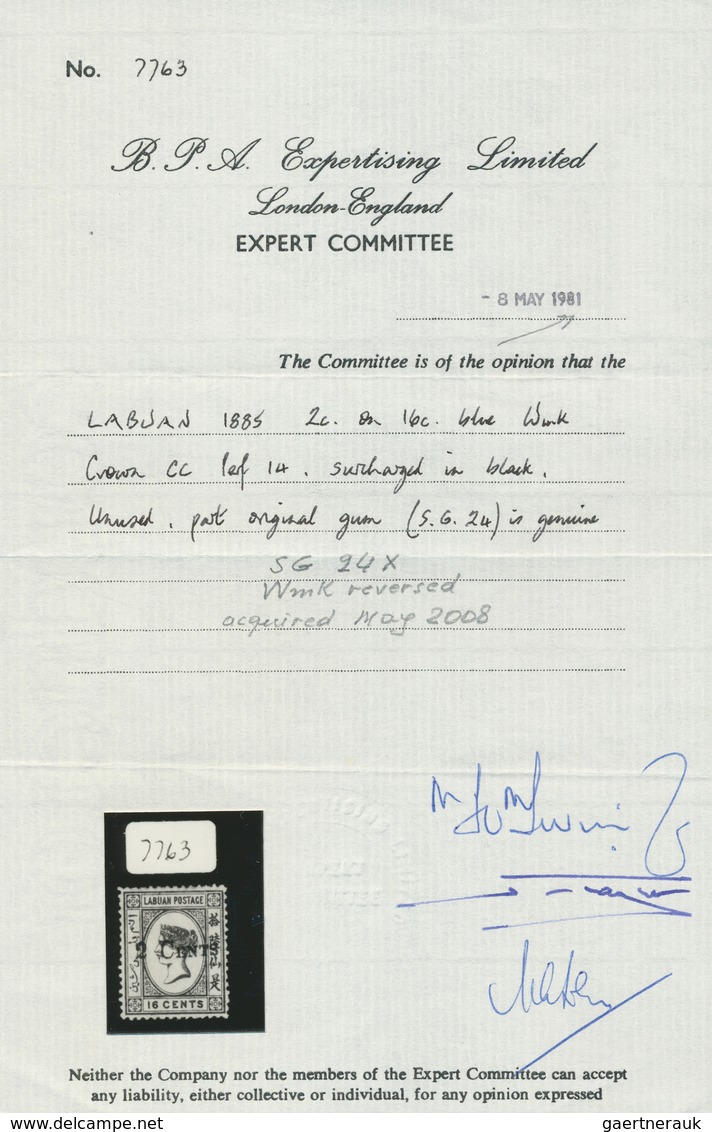 No. 7763
B. P. A. Expertising Limited
London-England
EXPERT COMMITTEE
- 8 MAY 1981
The Committee is of the opinion that the
LABUAN 1885 2c. on 16c. blue Wmk
Crown CC Perf 14. surcharged in black.
Unused, part original gum (S.G. 24) is genuine
SG 24X
Wmk reversed
acquired May 2008
7763
LABUAN POSTAGE
2 CENTS
16 CENTS
Neither the Company nor the members of the Expert Committee can accept
any liability, either collective or individual, for any opinion expressed
www.delcampe.net
gaertnerauk